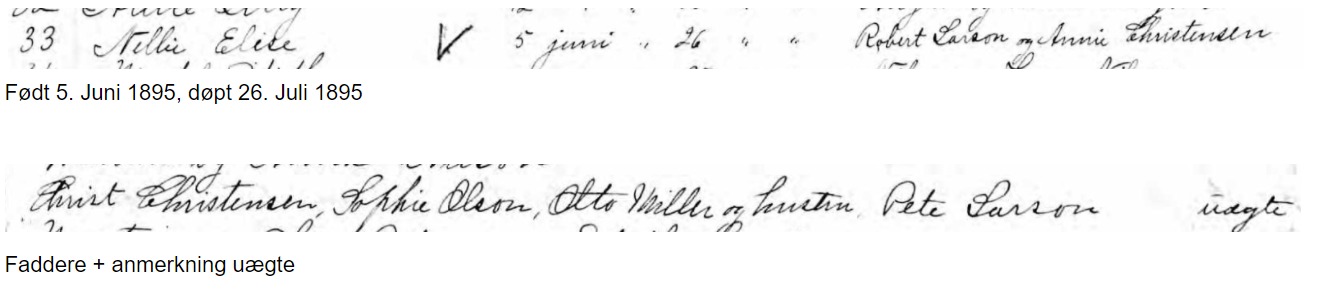 33 Nellie Elise V 5 juni " 26 " " Robert Larson og Annie Christensen
Født 5. Juni 1895, døpt 26. Juli 1895
Christ Christensen, Sophie Olson, Otto Miller og hustru, Pete Larson uægte
Faddere + anmerkning uægte